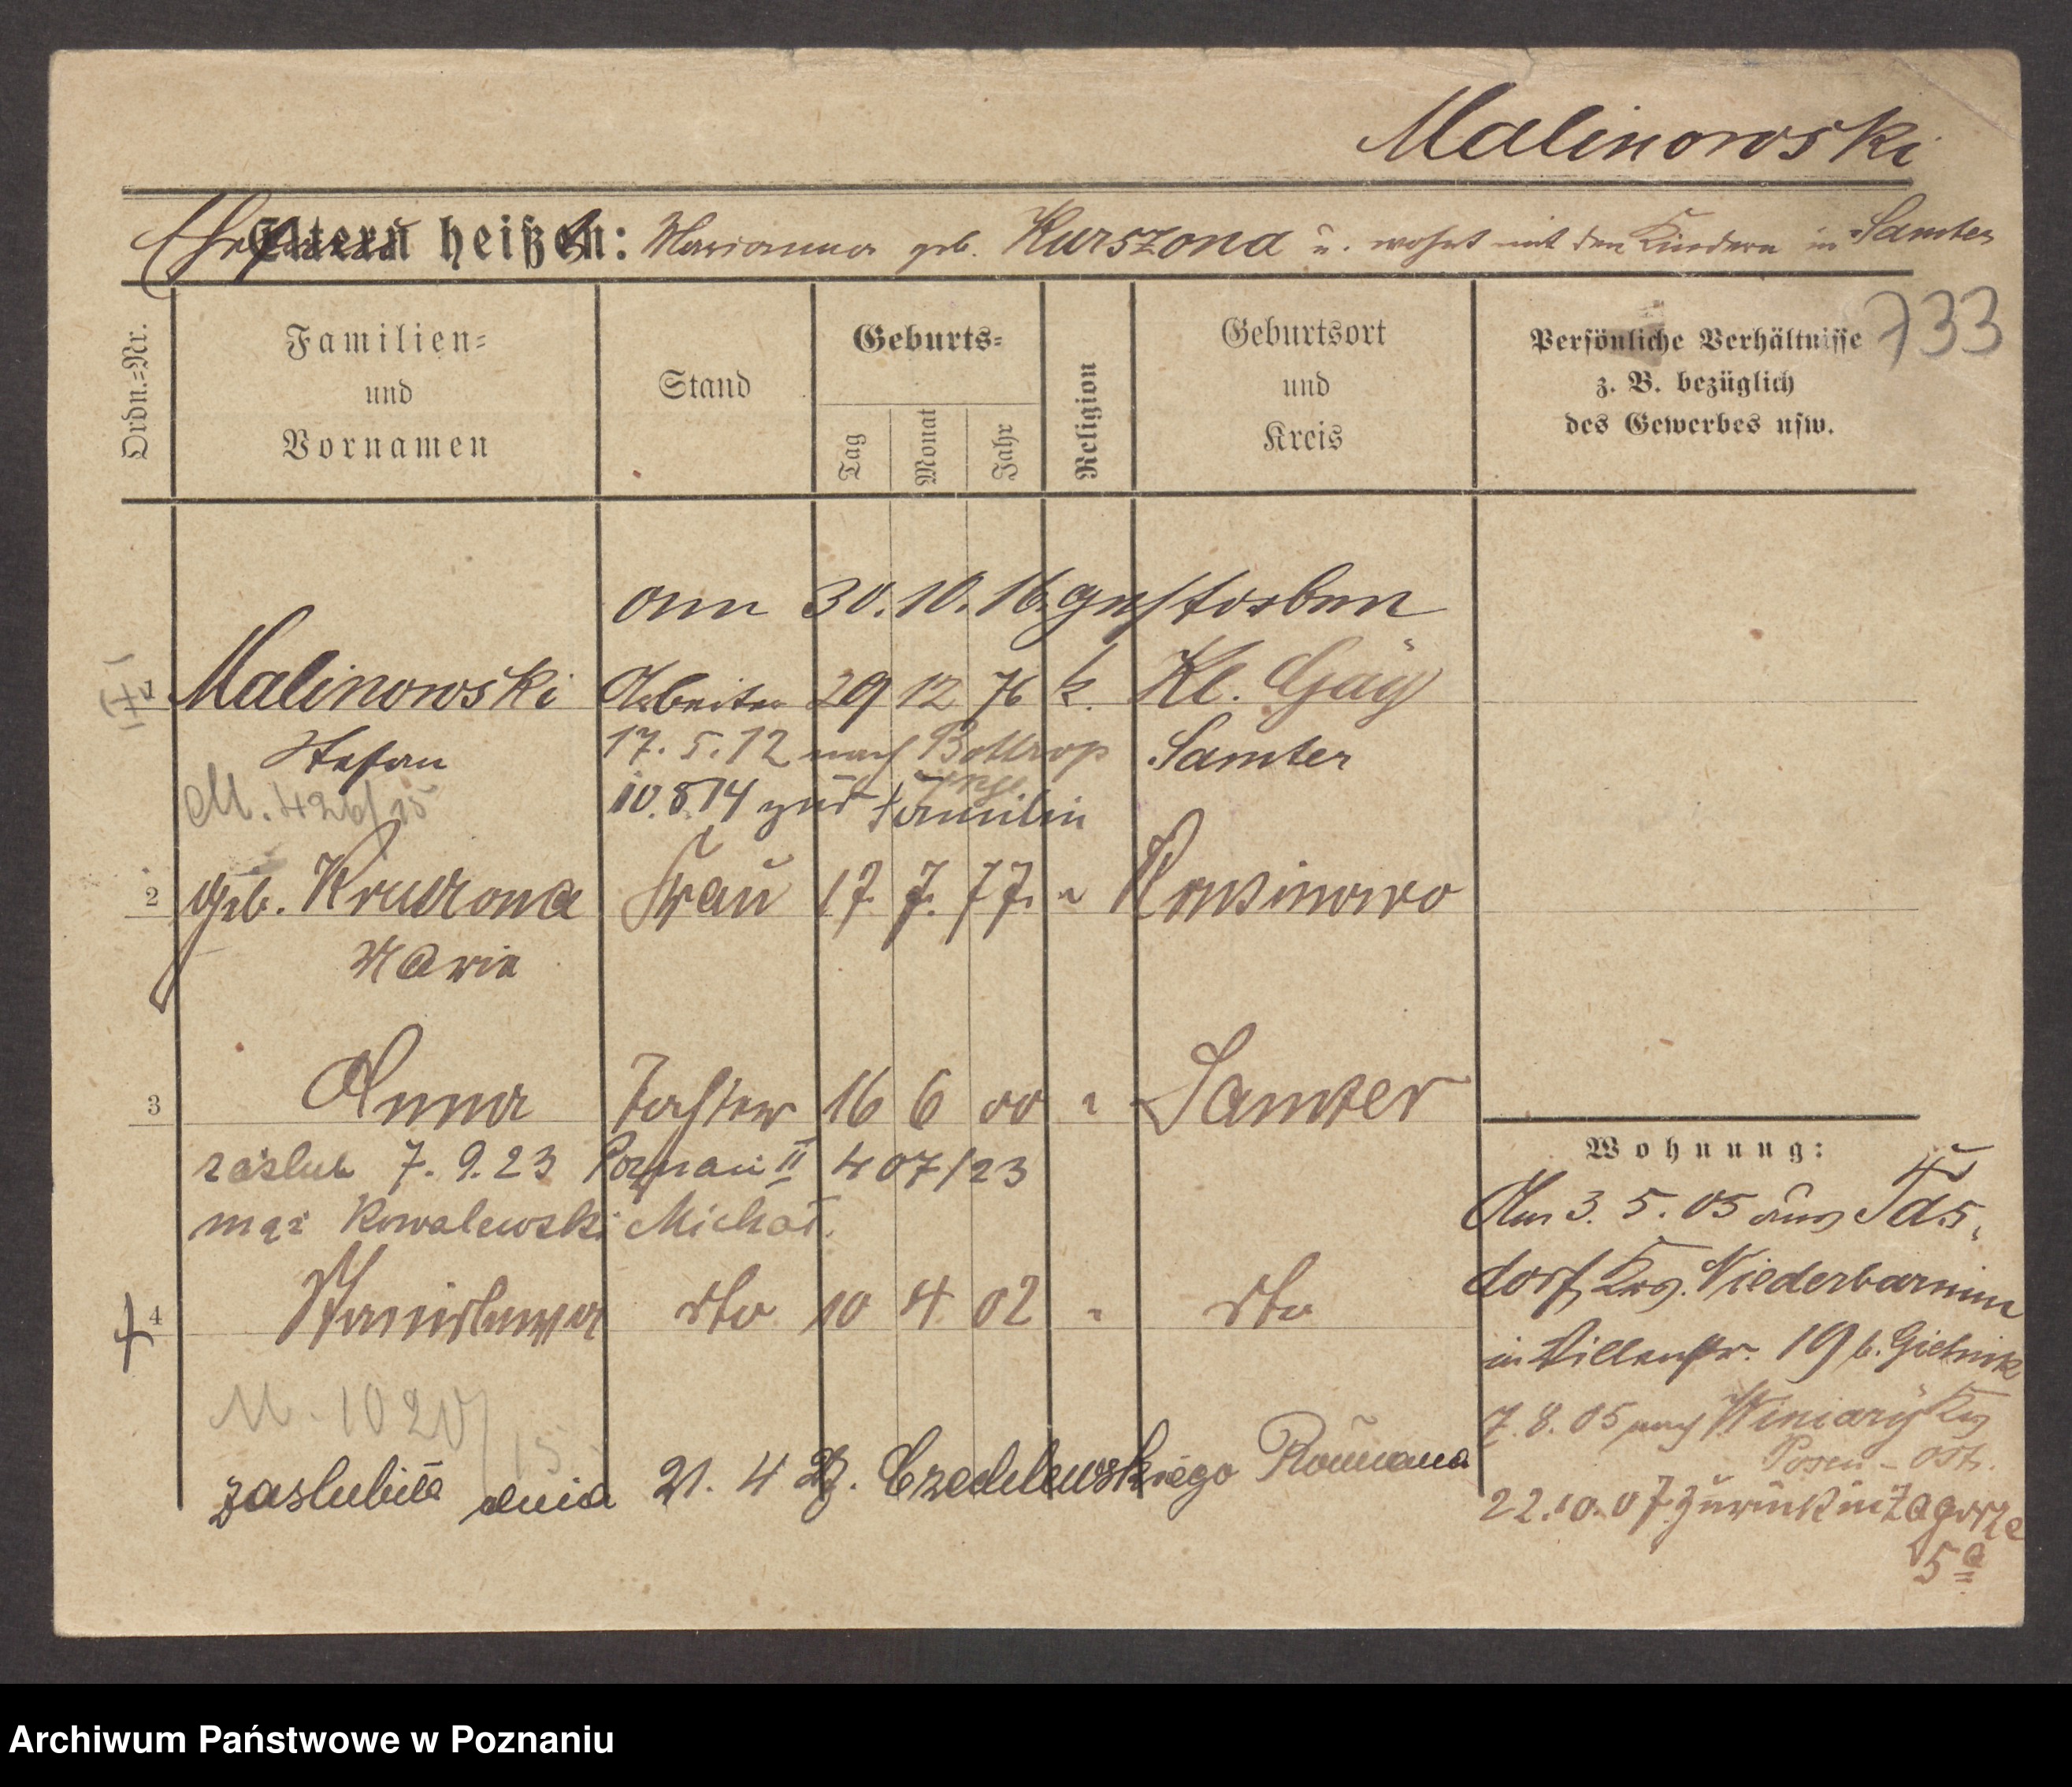 Malinowski
Ehefrau heißt: Marianna geb. Kurszona u. wohnt mit den Kindern in Samter
733
Ordn.=Nr.
Familien=
und
Vornamen
Stand
Geburts=
Tag
Monat
Jahr
Religion
Geburtsort
und
Kreis
Persönliche Verhältnisse
z. B. bezüglich
des Gewerbes usw.
am 30.10.16 gestorben
1 Malinowski Arbeiter 29 12 76 k. Kl. Gay
Stefan 17. 5. 12 nach Bottrop Samter
M. 426/15 10.8.14 zur Familie
2 geb. Kruszona Frau 17. 7. 77. "
Marie
3 Anna Tochter 16 6 00 " Samter
zaślub 7. 9. 23 Poznań II 407/23
mąż Kowalewski Michał.
4 Stanislawa dto 10 4 02 " dto
M. 1020/15
zaslubiła dnia 21. 4 Romana
Wohnung:
Am 3. 5. 05 aus
dorf, Krs. Niederbarnim
in 19 b.
7. 8. 05 nach Winiary Krs
Posen - Ost.
22.10.07 zurück in Zagorze
5a
Archiwum Państwowe w Poznaniu